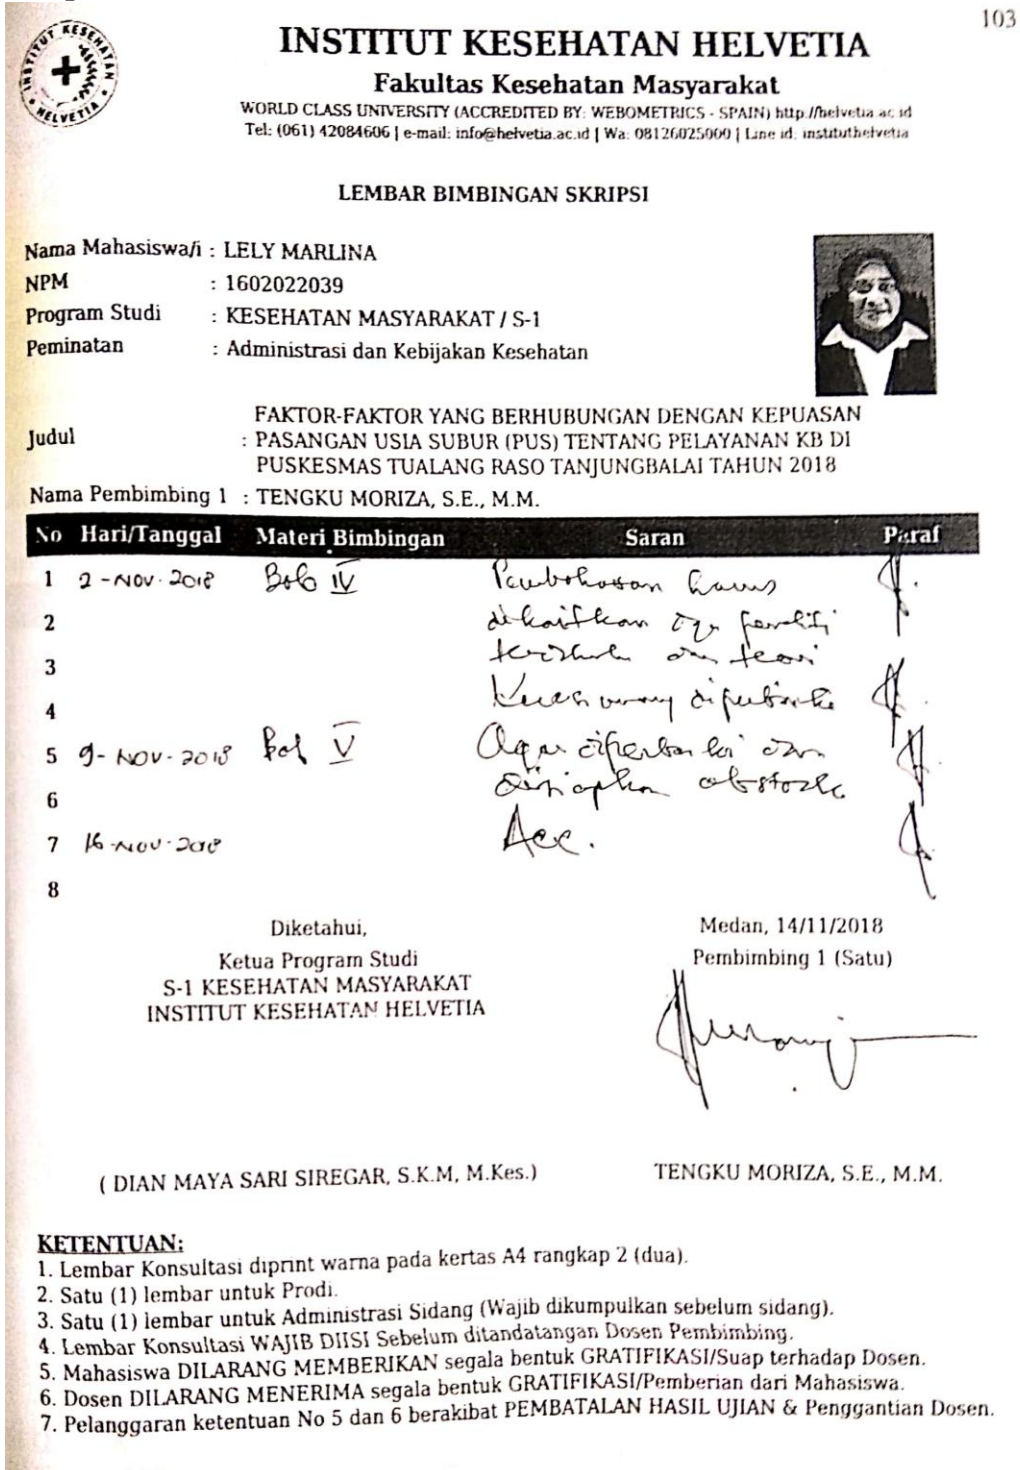 103
INSTITUT KESEHATAN HELVETIA
INSTITUT KESEHATAN HELVETIA
Fakultas Kesehatan Masyarakat
WORLD CLASS UNIVERSITY (ACCREDITED BY: WEBOMETRICS - SPAIN) http://helvetia.ac.id
Tel: (061) 42084606 | e-mail: info@helvetia.ac.id | Wa: 08126025000 | Line id: instituthelvetia
LEMBAR BIMBINGAN SKRIPSI
Nama Mahasiswa/i : LELY MARLINA
NPM : 1602022039
Program Studi : KESEHATAN MASYARAKAT / S-1
Peminatan : Administrasi dan Kebijakan Kesehatan
FAKTOR-FAKTOR YANG BERHUBUNGAN DENGAN KEPUASAN
Judul : PASANGAN USIA SUBUR (PUS) TENTANG PELAYANAN KB DI
PUSKESMAS TUALANG RASO TANJUNGBALAI TAHUN 2018
Nama Pembimbing 1 : TENGKU MORIZA, S.E., M.M.
No Hari/Tanggal Materi Bimbingan Saran Paraf
1 2-NOV-2018 Bab IV Pembahasan harus
2 dikaitkan dgn
3 dan teori
4
5 9-NOV-2018 Bab V Agar diperbaiki dan
6 disiapkan abstrak
7 16-NOV-2018 Acc.
8
Diketahui, Medan, 14/11/2018
Ketua Program Studi Pembimbing 1 (Satu)
S-1 KESEHATAN MASYARAKAT
INSTITUT KESEHATAN HELVETIA
( DIAN MAYA SARI SIREGAR, S.K.M, M.Kes.) TENGKU MORIZA, S.E., M.M.
KETENTUAN:
1. Lembar Konsultasi diprint warna pada kertas A4 rangkap 2 (dua).
2. Satu (1) lembar untuk Prodi.
3. Satu (1) lembar untuk Administrasi Sidang (Wajib dikumpulkan sebelum sidang).
4. Lembar Konsultasi WAJIB DIISI Sebelum ditandatangan Dosen Pembimbing.
5. Mahasiswa DILARANG MEMBERIKAN segala bentuk GRATIFIKASI/Suap terhadap Dosen.
6. Dosen DILARANG MENERIMA segala bentuk GRATIFIKASI/Pemberian dari Mahasiswa.
7. Pelanggaran ketentuan No 5 dan 6 berakibat PEMBATALAN HASIL UJIAN & Penggantian Dosen.